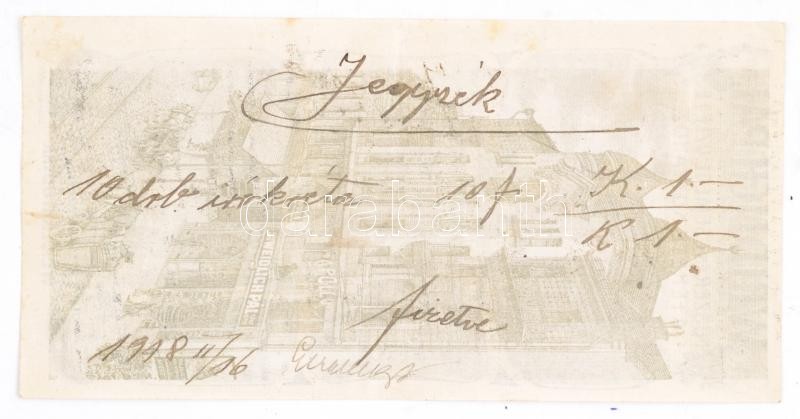 Jegyzék
10 drb irókréta 10 f. K. 1.—
K 1.—
fizetve
1918 II/26
darabanth